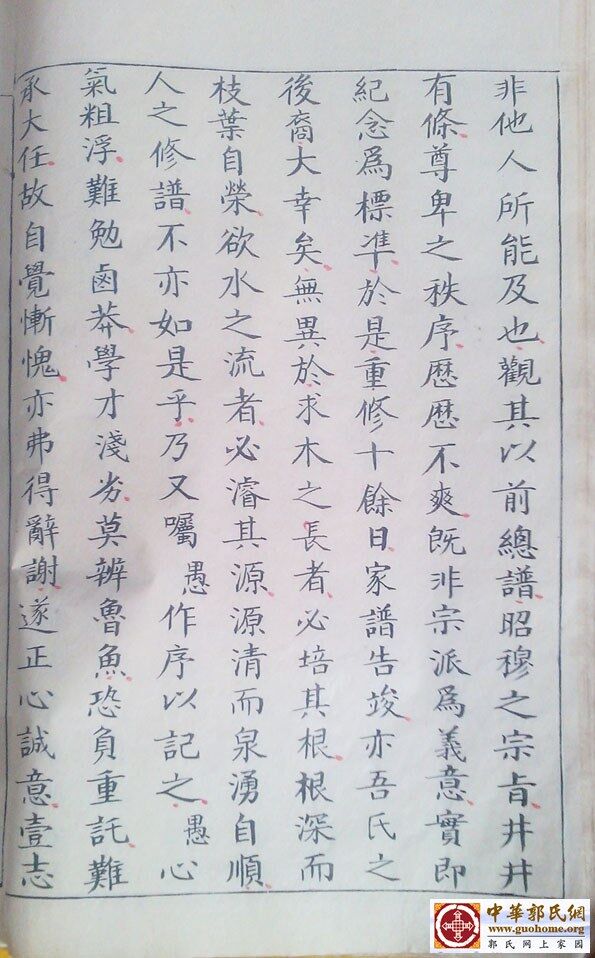 非他人所能及也觀其以前總譜昭穆之宗旨井井
有條尊卑之秩序歷歷不爽既非宗派為義意實即
紀念為標準於是重修十餘日家譜告竣亦吾氏之
後裔大幸矣無異於求木之長者必培其根根深而
枝葉自榮欲水之流者必濬其源源清而泉湧自順
人之修譜不亦如是乎乃又囑愚作序以記之愚心
氣粗浮難勉鹵莽學才淺劣莫辨魯魚恐負重託難
承大任故自覺慚愧亦弗得辭謝遂正心誠意壹志
中華郭氏網
www.guohome.org
郭氏网上家园